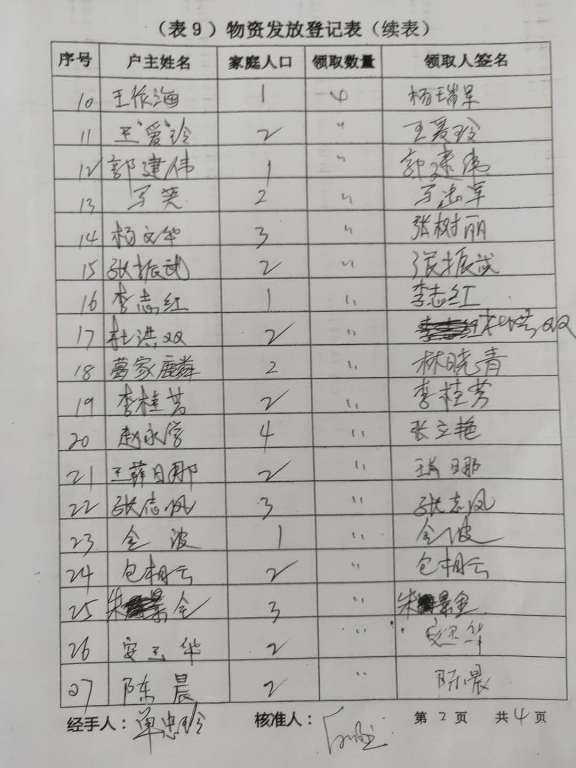 （表9）物资发放登记表（续表）
序号 户主姓名 家庭人口 领取数量 领取人签名
10 王作海 1 4 杨瑞
11 王爱玲 2 〃 王爱玲
12 郭建伟 1 〃 郭建伟
13 2 〃
14 杨文华 3 〃 张树丽
15 张振武 2 〃 张振武
16 李志红 1 〃 李志红
17 杜洪双 2 〃 杜洪双
18 家麟 2 〃 林晓青
19 李桂芳 2 〃 李桂芳
20 赵永 4 〃 张立艳
21 王 日那 2 〃 日娜
22 张志凤 3 〃 张志凤
23 金波 1 〃 金波
24 包胡云 2 〃 包胡云
25 朱景全 3 〃 朱景全
26 安玉华 2 〃 安玉华
27 陈晨 2 〃 陈晨
经手人：单忠玲 核准人： 第2页 共4页